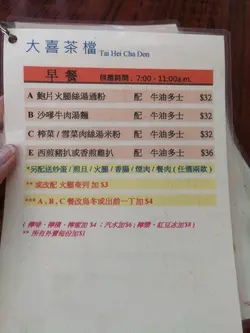 大喜茶檔 Tai Hei Cha Den
早餐 供應時間：7:00 - 11:00a.m.
A 鮑片火腿絲湯通粉 配 牛油多士 $32
B 沙嗲牛肉湯麵 配 牛油多士 $32
C 榨菜/雪菜肉絲湯米粉 配 牛油多士 $32
E 西煎豬扒或香煎雞扒 配 牛油多士 $36
*另配送炒蛋/煎旦/火腿/香腸/煙肉/餐肉(任選兩款)
** 或改配 火腿奄列 加 $3
*** A , B , C 餐改烏冬或出前一丁加 $4
加 $4 ; 汽水加$6 ; 紅豆冰加$8 )
** 所有外賣每份加$1